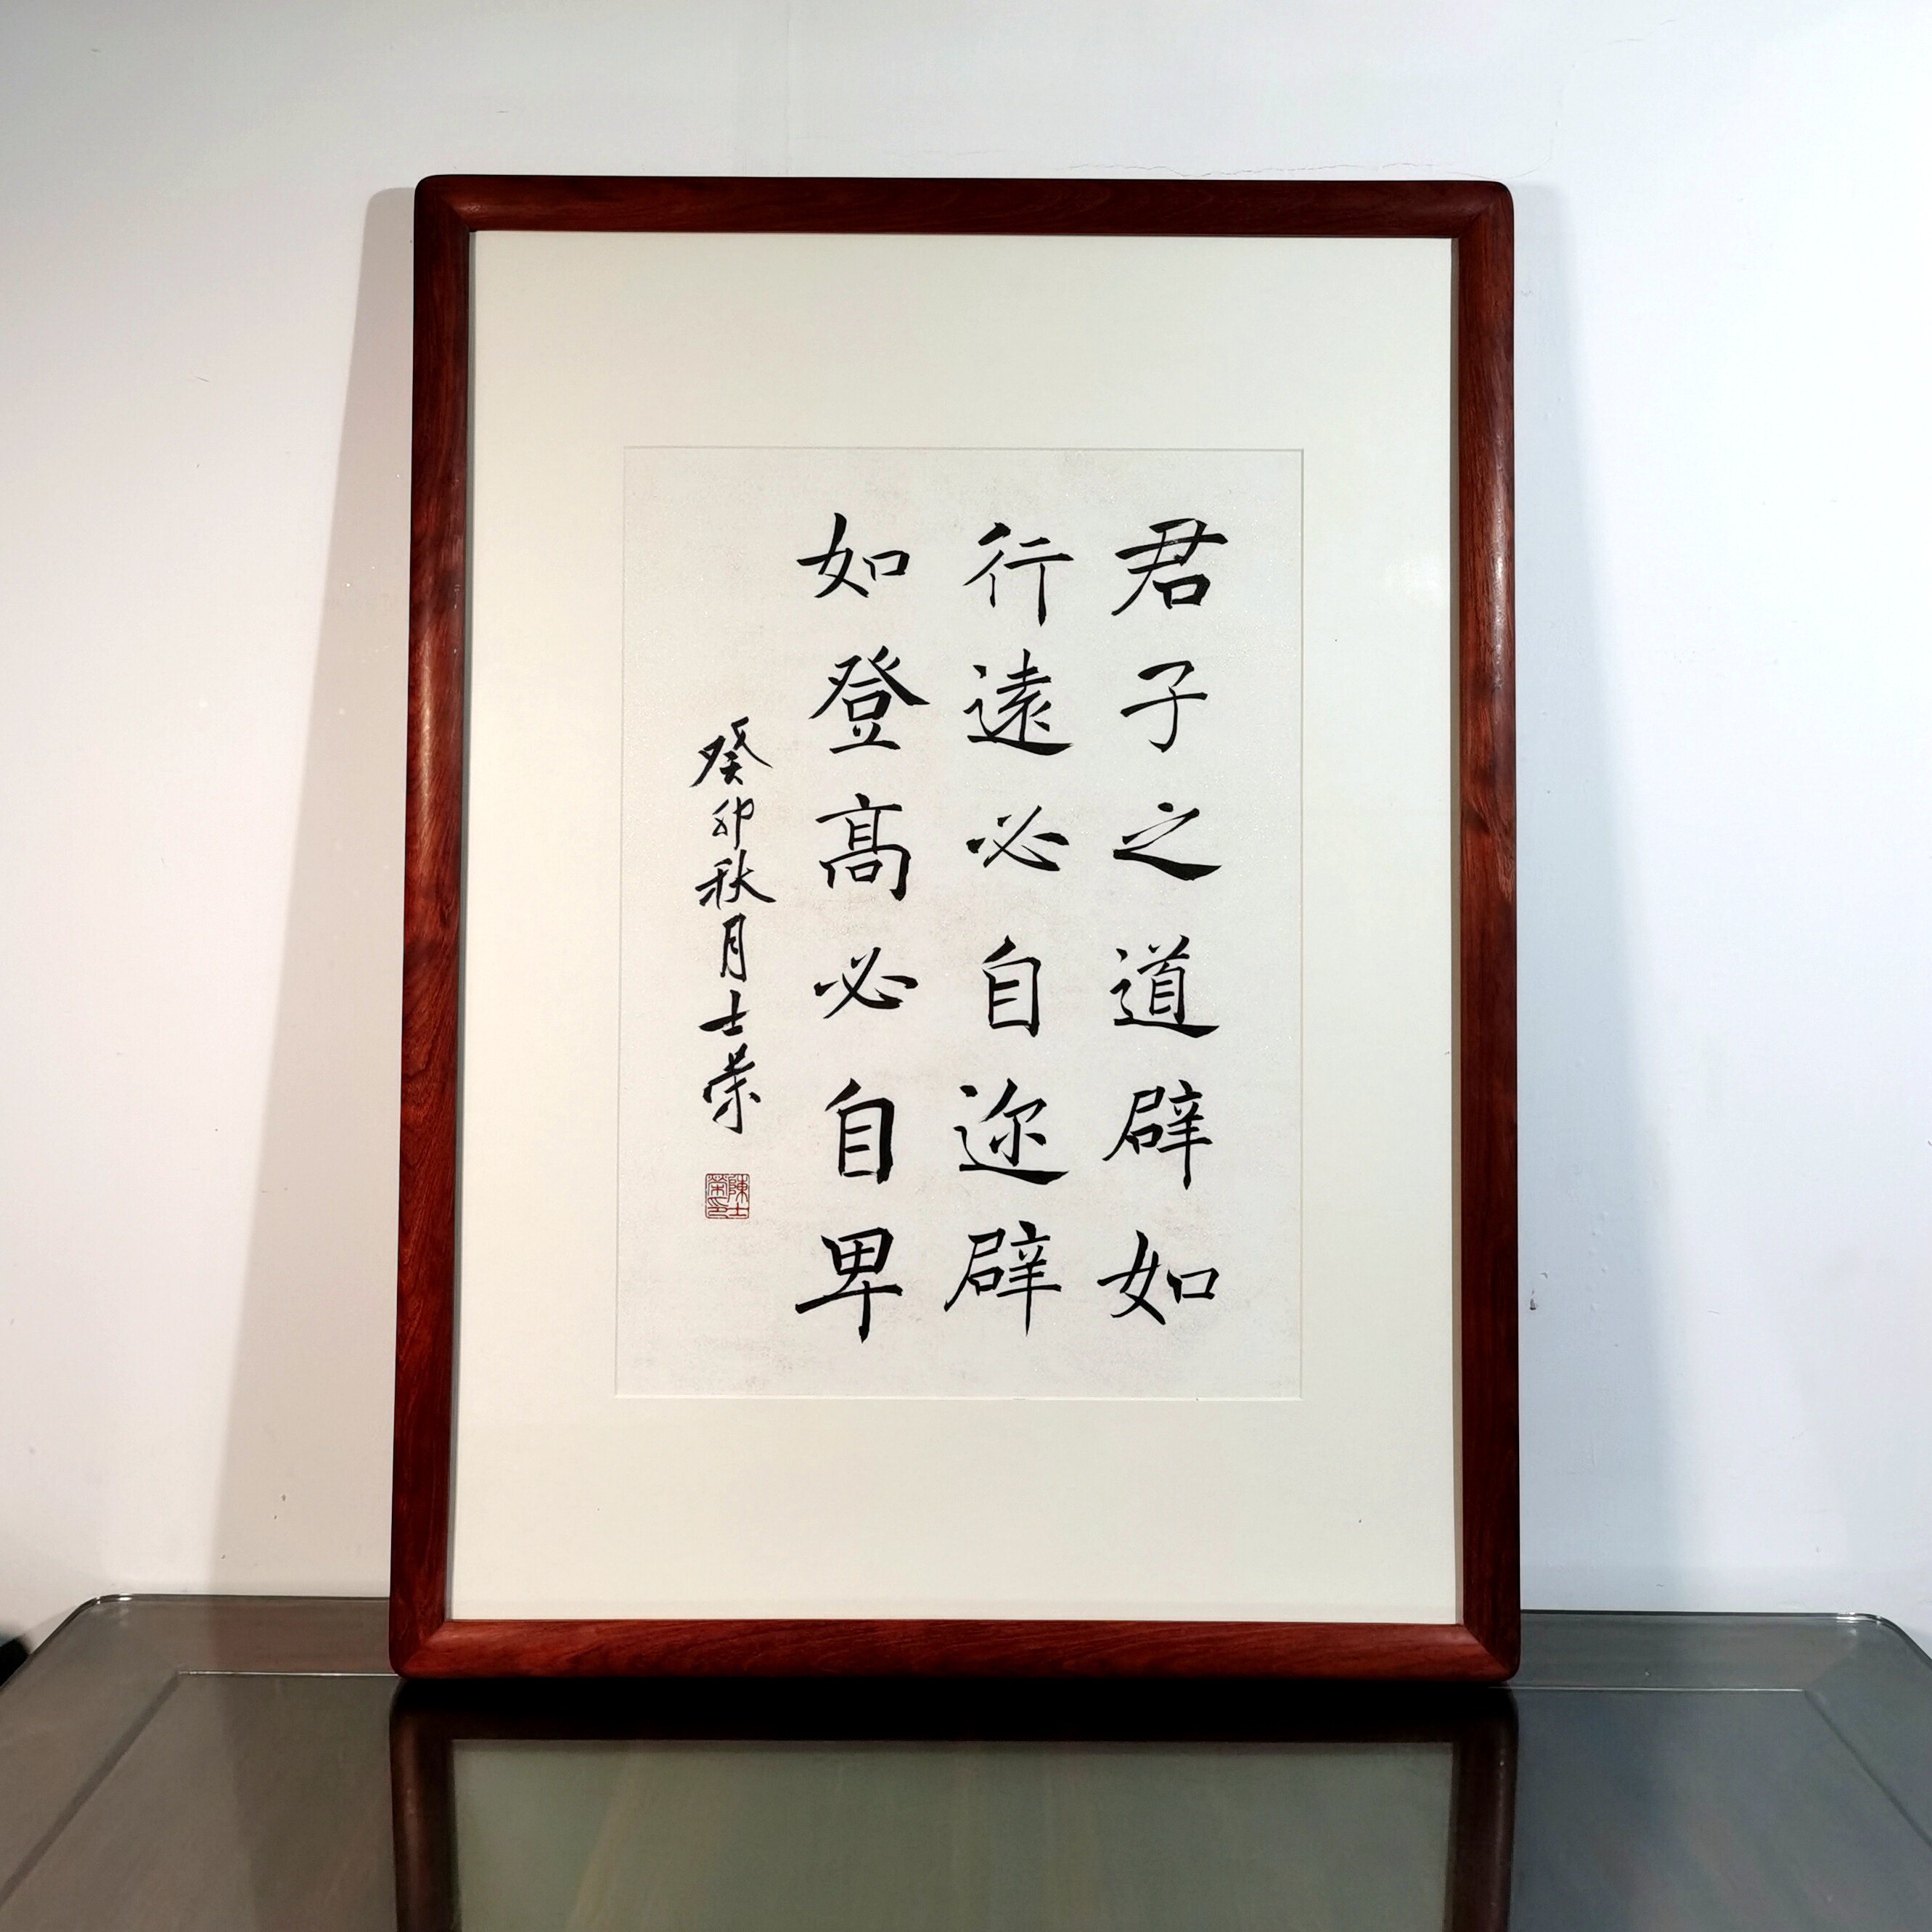 君子之道辟如
行遠必自迩辟
如登高必自卑
癸卯秋月士荣
陳士榮印